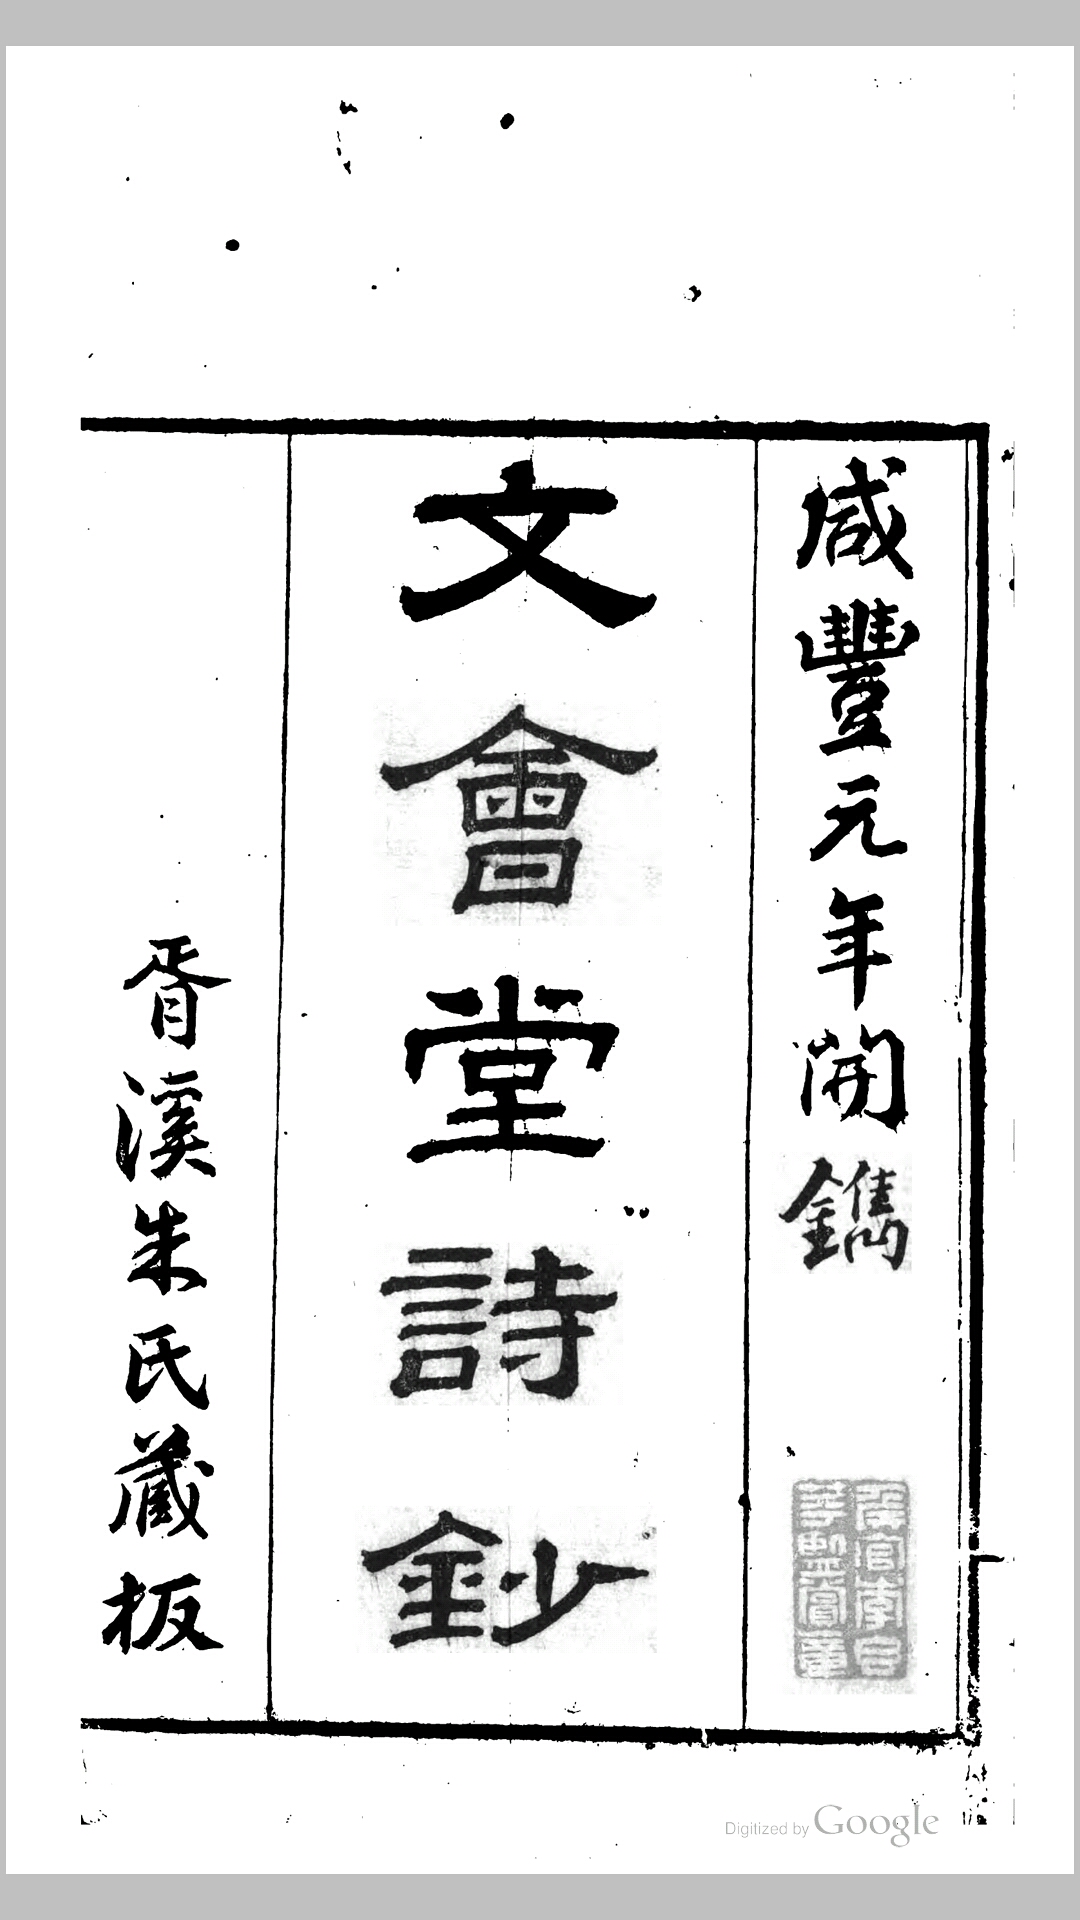 咸豐元年開鐫
文會堂詩鈔
胥溪朱氏藏板
Digitized by Google